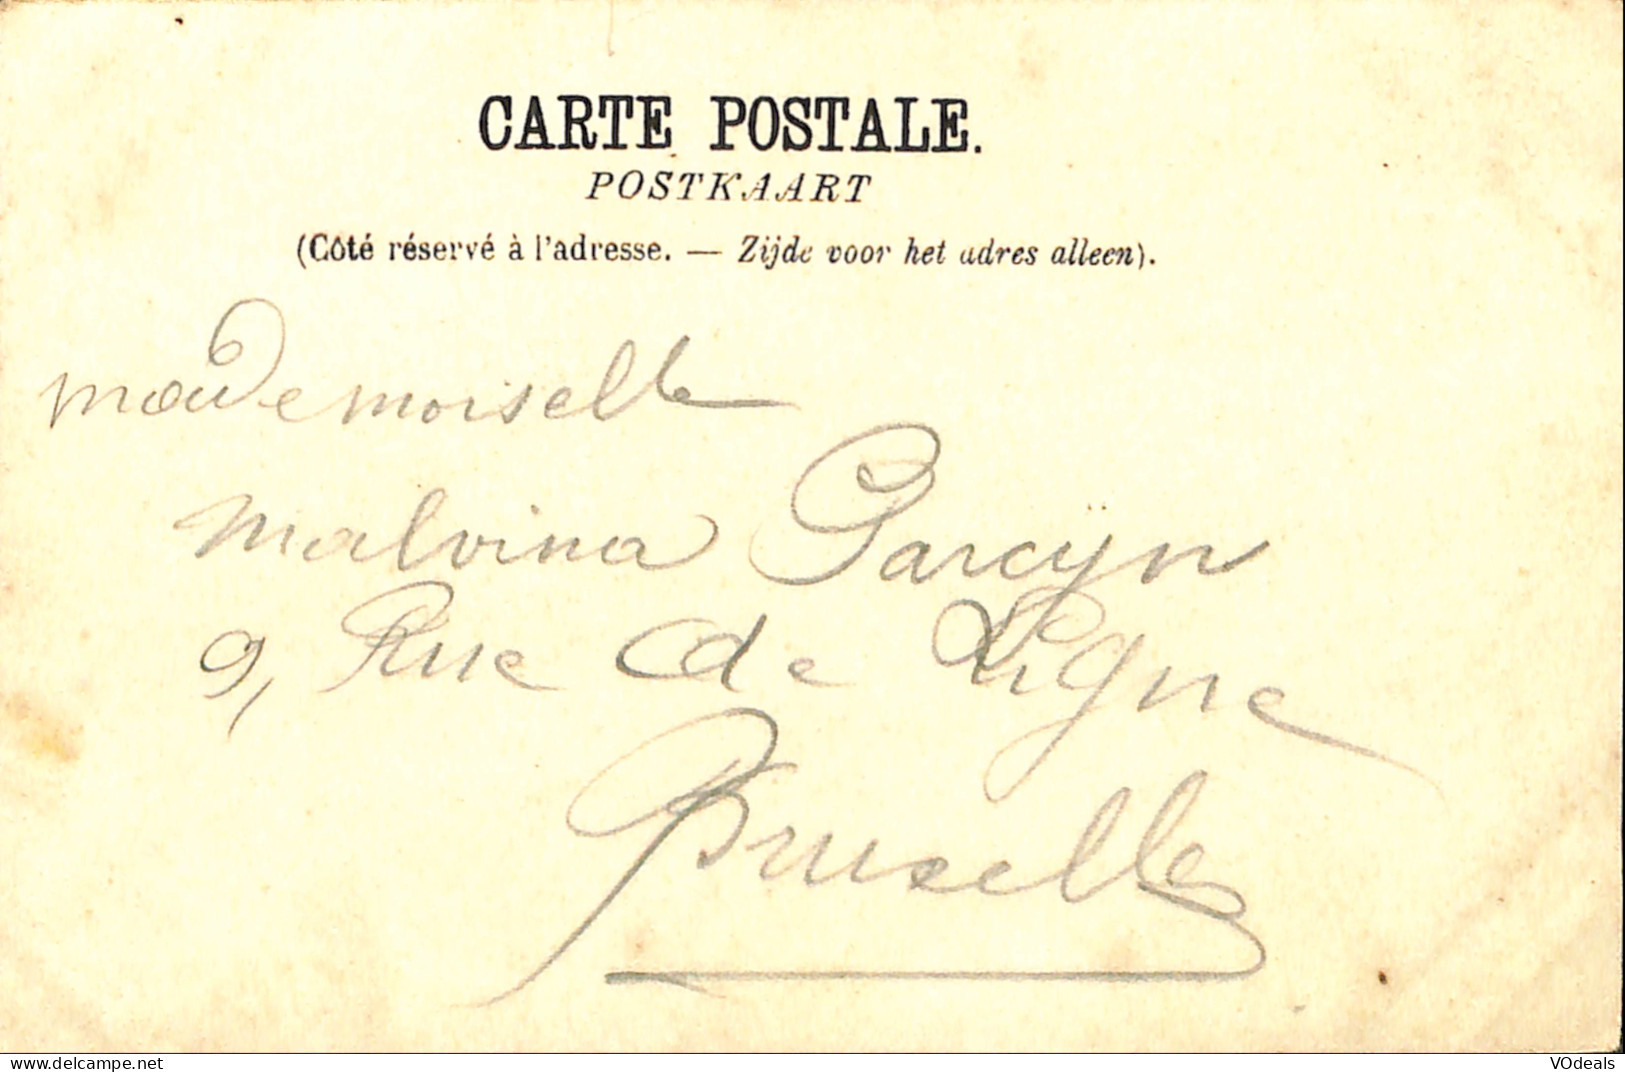 CARTE POSTALE.
POSTKAART
(Côté réservé à l'adresse. — Zijde voor het adres alleen).
Mademoiselle
Malvina Garcÿn
9, Rue de Ligne
Bruxelles
https://www.delcampe.net
VOdeals